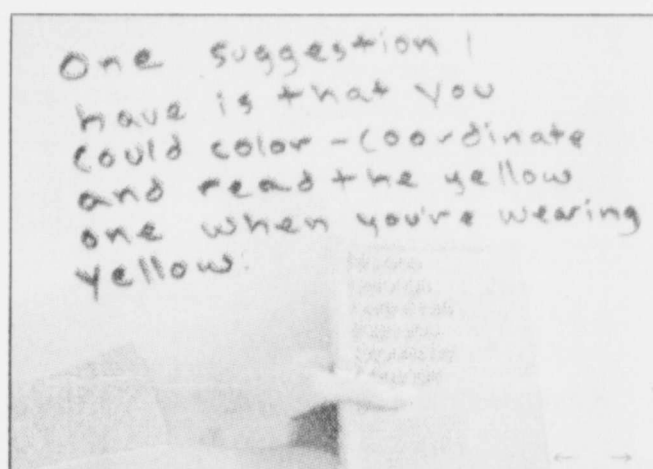 One suggestion I
have is that you
could color-coordinate
and read the yellow
one when you're wearing
yellow.